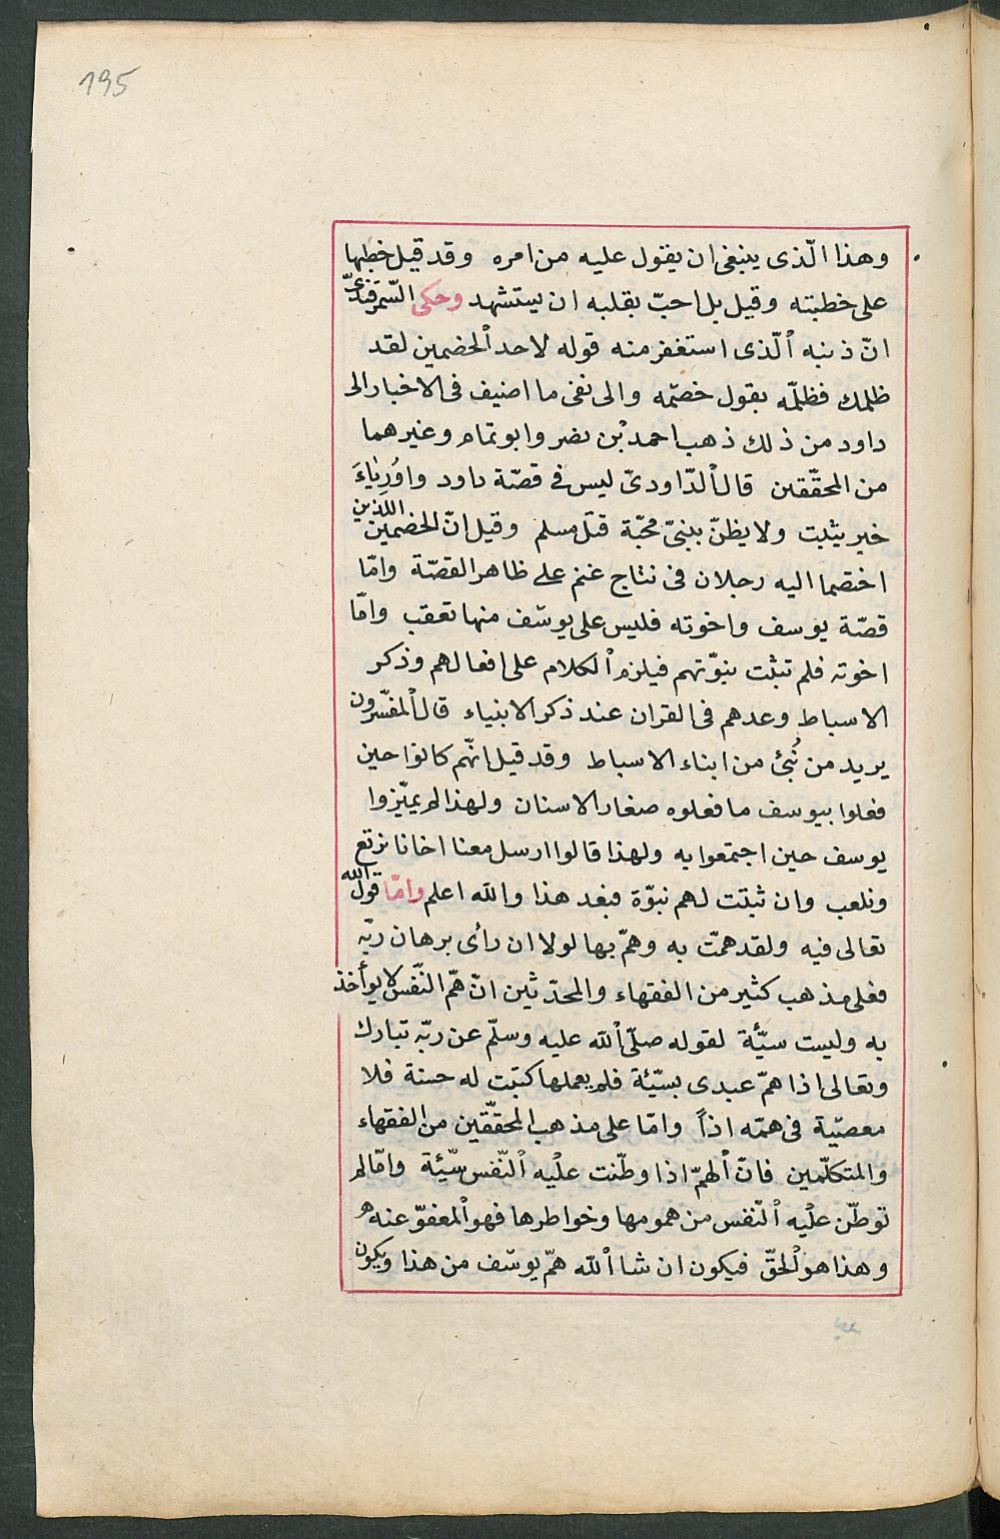 195
وهذا الّذى ينبغى ان يقول عليه من امره وقد قيل خطبها
على خطبته وقيل بل احبّ بقلبه ان يستشهد وحكى السّمرقندىّ
انّ ذنبه ٱلّذى استغفر منه قوله لاحد ٱلخصمين لقد
ظلمك فظلّمه بقول خصمه والى نفى ما اضيف فى الاخبار الى
داود من ذلك ذهب احمد بْن نصر وابو تمام وغيرهما
من المحقّقين قال ٱلدّاودىّ ليس فى قصّة داود واوُرِيٰاءَ
خبر يثبت ولا يظنّ بنبىّ محبّة قتل مسلم وقيل انّ الخصمين اللذين
اختصما اليه رجلان فى نتاج غنم على ظاهر القصّة وامّا
قصّة يوسف واخوته فليس على يوسف منها تعقب وامّا
اخوته فلم تثبت نبوّتهم فيلزم ٱلكلام على افعالهم وذكر
الاسباط وعدهم فى القران عند ذكر الانبياء قال ٱلمفسّرون
يريد من نُبّئ من ابناء الاسباط وقد قيل انّهم كانوا حين
فعلوا بيوسف ما فعلوه صغار الاسنان ولهذا لم يميّزوا
يوسف حين اجتمعوا به ولهذا قالوا ارسل معنا اخانا نرتع
ونلعب وان ثبتت لهم نبوّة فبعد هذا والله اعلم وامّا قول الله
تعالى فيه ولقد همّت به وهمّ بها لولا ان رأى برهان ربّه
فعلى مذهب كثير من الفقهاء والمحدّثين انّ همّ النّفس لا يوأخذ
به وليست سيّأة لقوله صلّى ٱلله عليه وسلّم عن ربّه تبارك
وتعالى اذا همّ عبدى بسيّئة فلم يعملها كتبت له حسنة فلا
معصيّة فى همّه اذاً وامّا على مذهب المحقّقين من الفقهاء
والمتكلّمين فانّ ٱلهمّ اذا وطّنت عليْه ٱلنّفس سيّئة وامّا لم
توطّن عليْه ٱلنّفس من همومها وخواطرها فهو ٱلمعفوّ عنه
وهذا هو ٱلحقّ فيكون ان شا ٱلله همّ يوسف من هذا ويكون